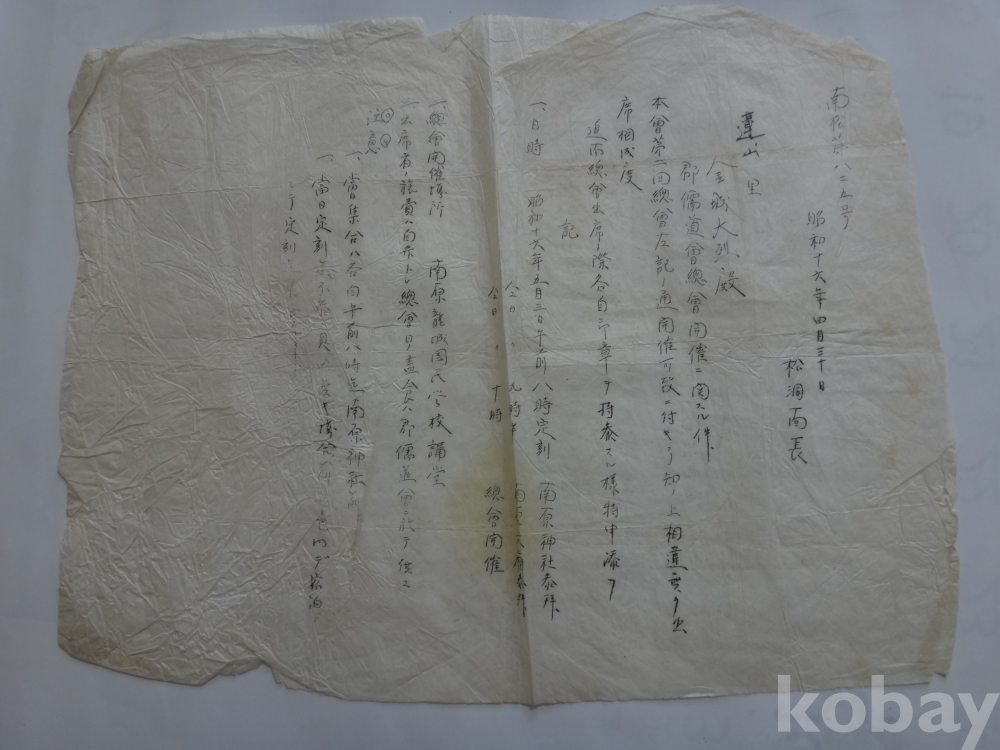 南松第八二五号
昭和十六年四月三十日
松洞面長
蓮山里
金城大烈殿
郡儒道會總會開催ニ関スル件
本會第二回總會左記ノ通開催可致ニ付キ了知ノ上相違要ク出
席相成度
追而總會出席ノ際各自印章ヲ持参スル様特申添フ
記
一、日時 昭和十六年五月三日午前八時定刻 南原神社参拝
仝日 〃 九時半
仝日 〃 十時 總會開催
一、總會開催場所 南原龍城国民学校講堂
一、出席者ノ旅費ハ自弁トシ總會日ノ畫食ハ郡儒道會ニ於テ供ス
注意
一、當集合ハ各面午前八時迄南原神社
一、當日定刻
定刻
kobay